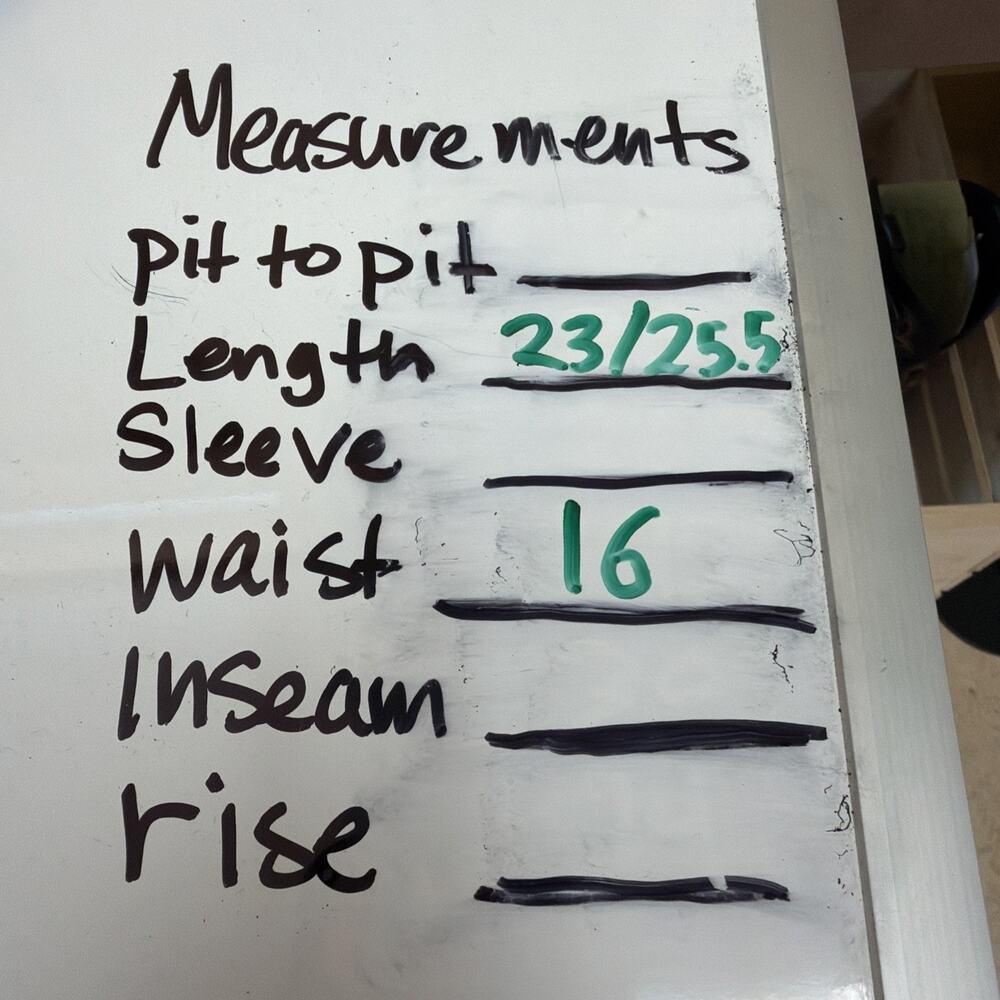 Measurements
pit to pit
Length 23/25.5
Sleeve
waist 16
Inseam
rise